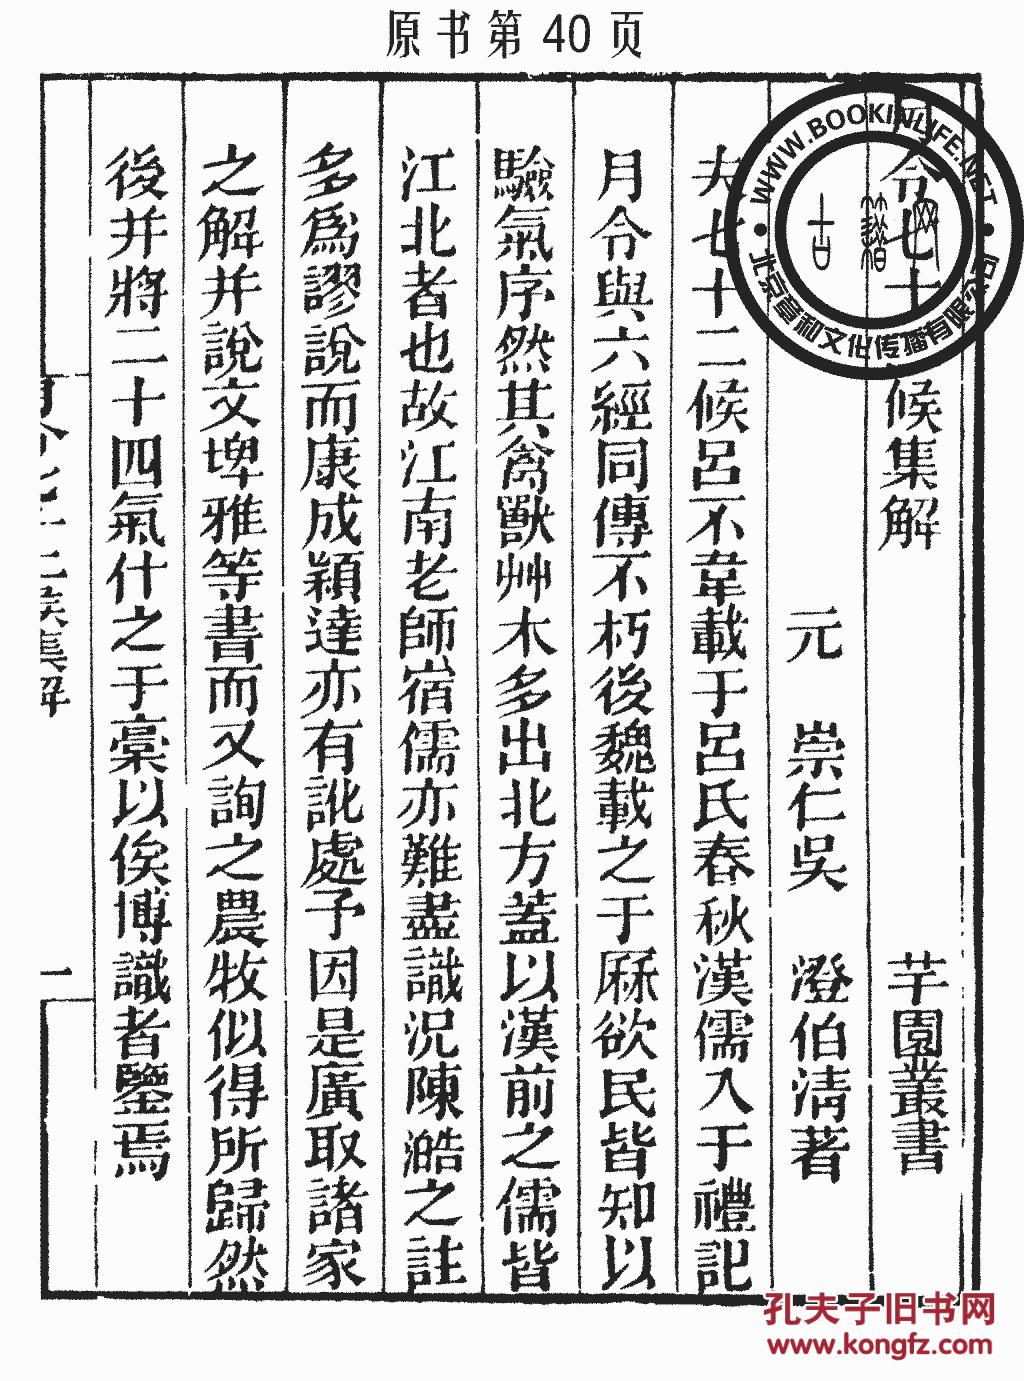 原书第 40 页
月令七十二候集解
芋園叢書
元 崇仁吳 澄伯淸著
夫七十二候呂不韋載于呂氏春秋漢儒入于禮記
月令與六經同傳不朽後魏載之于厤欲民皆知以
驗氣序然其禽獸艸木多出北方蓋以漢前之儒皆
江北者也故江南老師宿儒亦難盡識況陳澔之註
多爲謬說而康成穎達亦有訛處予因是廣取諸家
之解并說文埤雅等書而又詢之農牧似得所歸然
後并將二十四氣什之于稾以俟博識者鑒焉
月令七十二候集解
一
WWW.BOOKINLIFE.NET
北京章和文化传播有限公司
孔夫子旧书网
www.kongfz.com